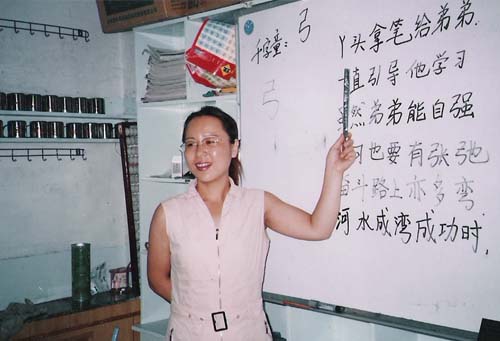 千字童：弓
弓
丫头拿笔给弟弟.
直引导他学习
然弟弟能自强
习也要有张弛
奋斗路上亦多弯
河水成湾成功时.